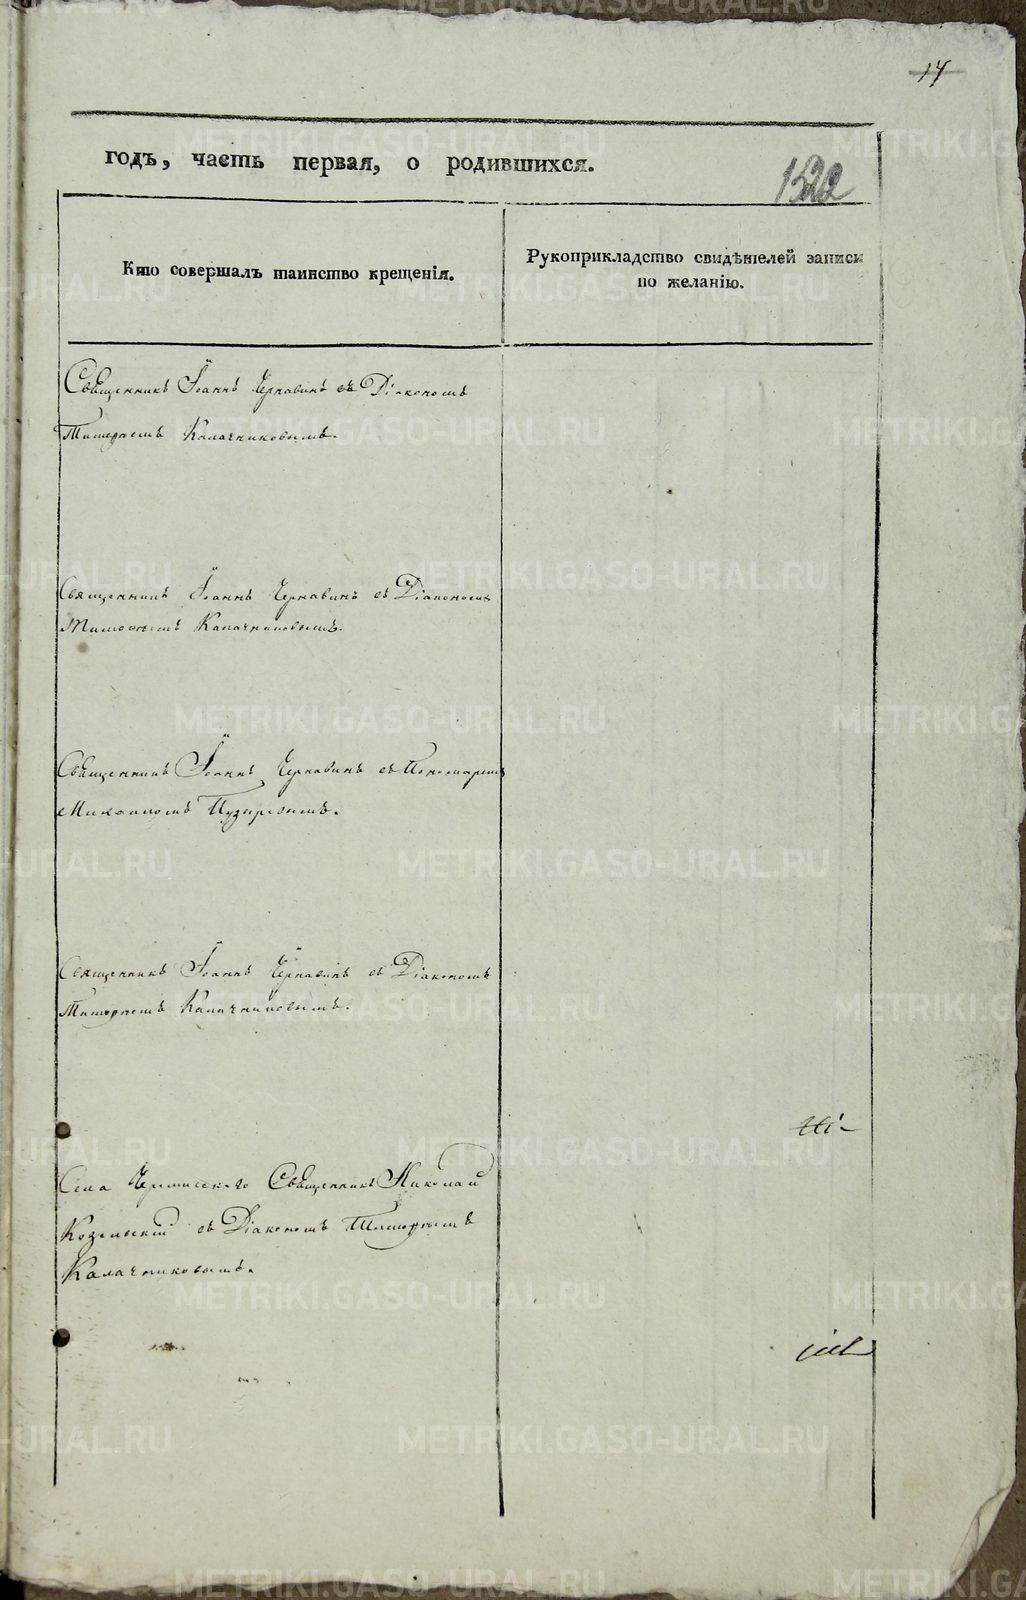 14
годъ, часть первая, о родившихся.
Кто совершалъ таинство крещенія.
Рукоприкладство свидѣтелей записи
по желанію.
Священникъ Іоаннъ Чернавинъ съ Діакономъ
Тимоѳеемъ Калачниковымъ.
Священникъ Іоаннъ Чернавинъ съ Діакономъ
Тимоѳеемъ Калачниковымъ.
Священникъ Іоаннъ Чернавинъ съ Пономаремъ
Михаиломъ Пузыревымъ.
Священникъ Іоаннъ Чернавинъ съ Діакономъ
Тимоѳеемъ Калачниковымъ.
Села Священникъ Николай
Козельскій съ Діакономъ Тимоѳеемъ
Калачниковымъ.
METRIKI.GASO-URAL.RU